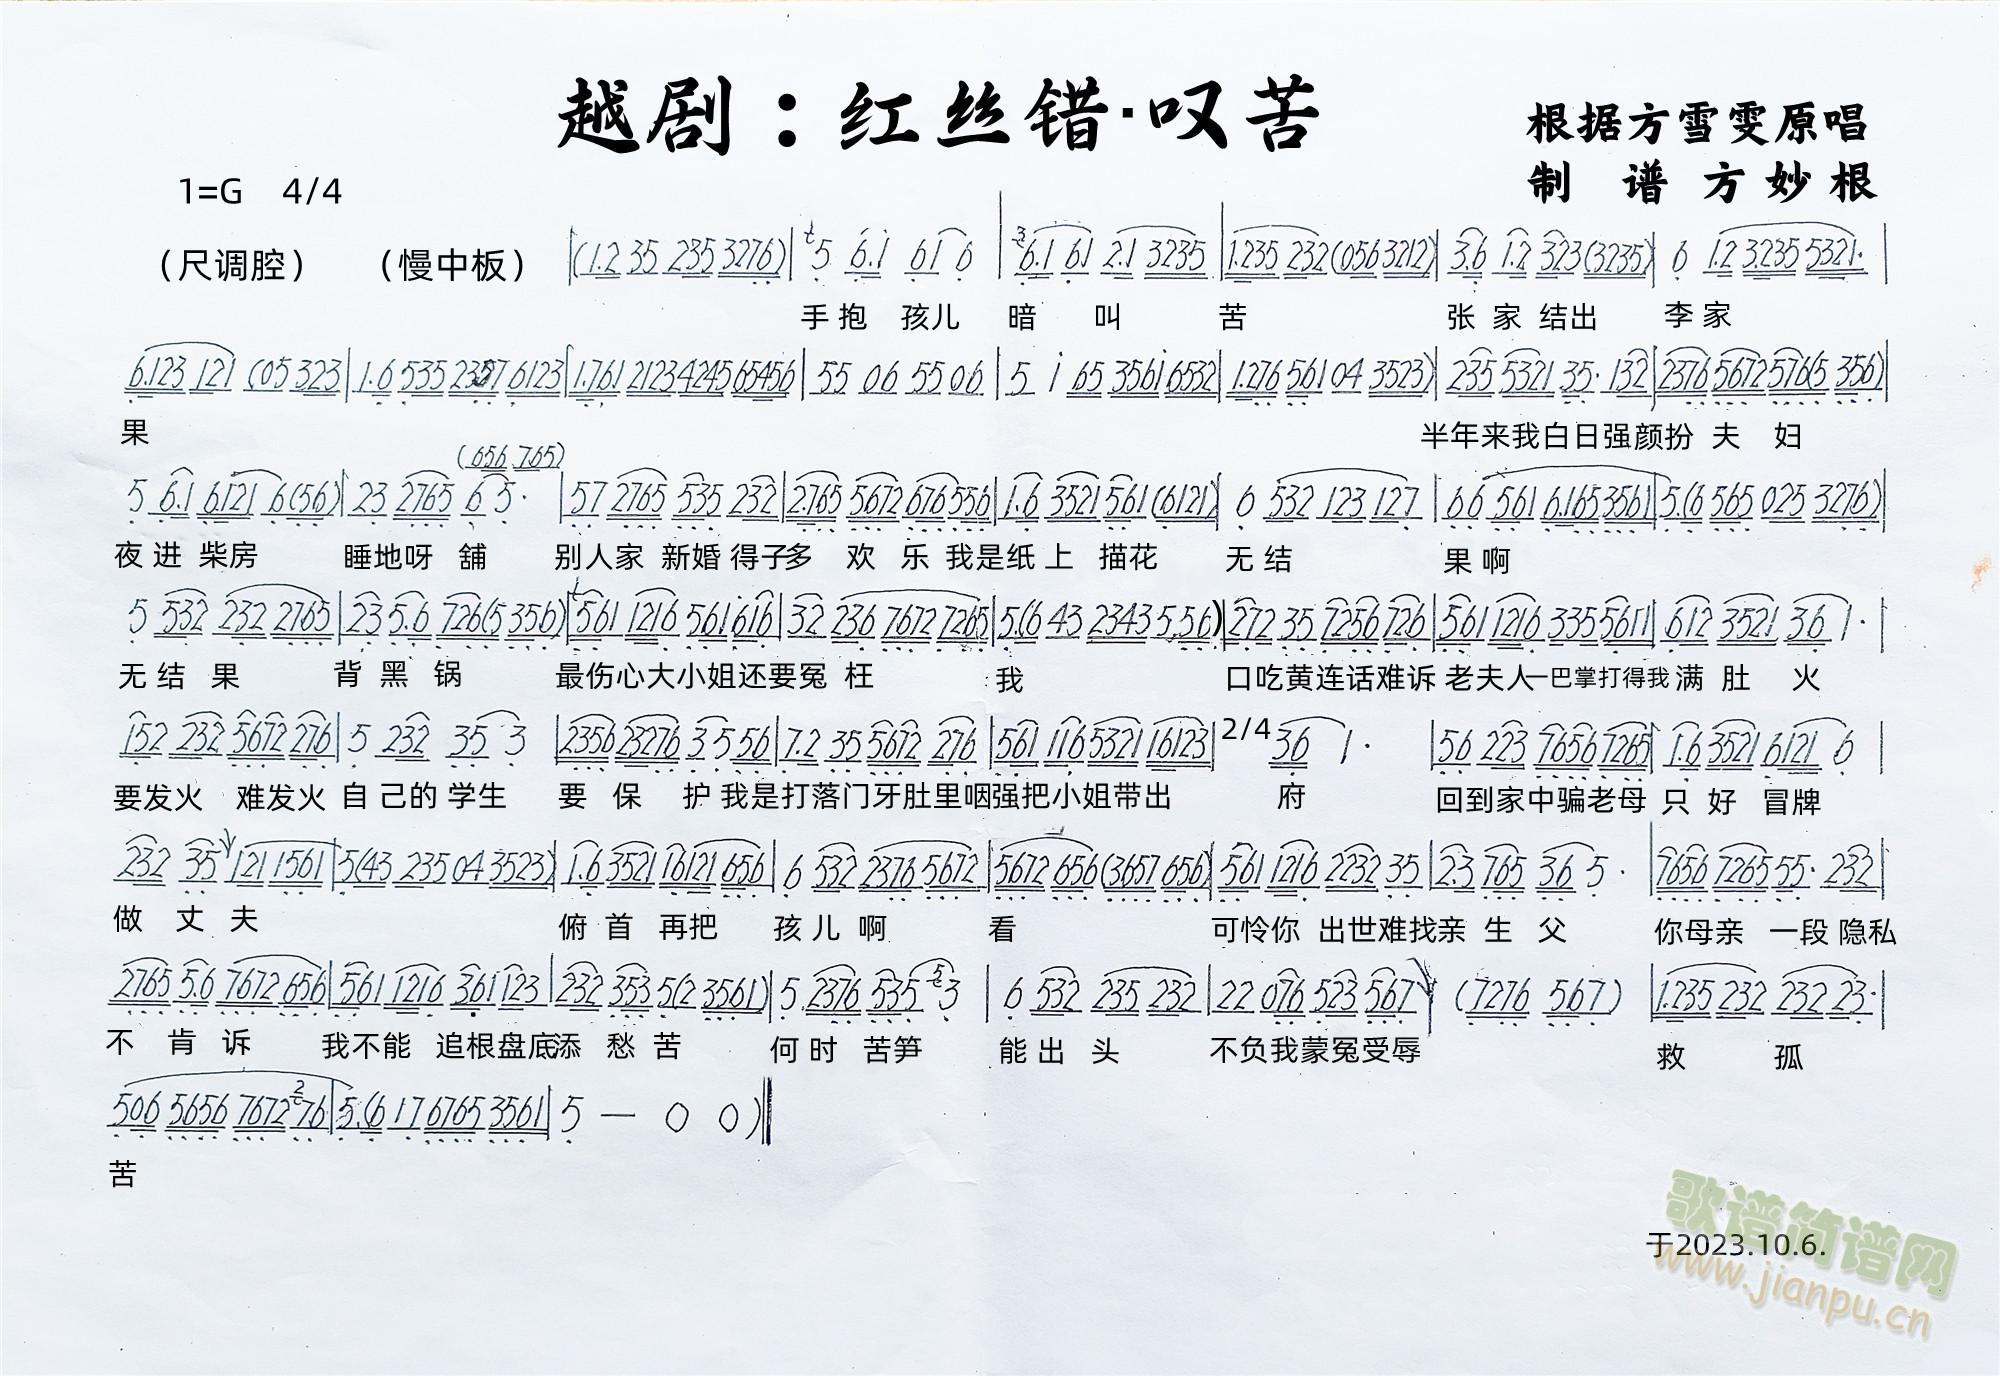 越剧：红丝错·叹苦
根据方雪雯原唱
制 谱 方 妙 根
1=G 4/4
（尺调腔） （慢中板）
(1.2 35 235 3276) | 5 6.1 61 6 | 6.1 61 2.1 3235 | 1.235 232 (056 3212) | 3.6 1.2 323 (3235) | 6 1.2 3.235 5321. |
手 抱 孩儿 暗 叫 苦 张 家 结出 李 家
6.123 121 (05 323 | 1.6 535 6123 | 1.761 2123 4245 65456 | 55 06 55 06 | 5 i 65 356i 6532 | 1.276 561 04 3523) | 235 5321 35. 132 | 2376 5672 576 (5 356) |
果 半年来我白日强颜扮 夫 妇
(656 765)
5 6.1 6.121 6 (56) | 23 2765 6 5. | 57 2765 535 232 | 2.765 5672 676 556 | 1.6 3521 561 (6121) | 6 532 123 127 | 66 561 6.165 3561 | 5.(6 565 025 3276) |
夜 进 柴房 睡地呀 舖 别人家 新婚 得子多 欢 乐 我是纸 上 描花 无 结 果 啊
5 532 232 2765 | 23 5.6 726 (5 356) | 561 1216 561 616 | 32 236 7672 7265 | 5.(6 43 2343 5.56) | 272 35 7256 726 | 561 1216 335 5611 | 612 3521 36 1. |
无 结 果 背 黑 锅 最伤心大小姐还要冤 枉 我 口吃黄连话难诉 老夫人一巴掌打得我 满 肚 火
152 232 5672 276 | 5 232 35 3 | 2356 23276 35 56 | 7.2 35 5672 276 | 561 116 5321 16123 | 2/4 36 1. | 56 223 7656 7265 | 1.6 3521 6121 6 |
要发火 难发火 自 己的 学生 要 保 护 我是打落门牙肚里咽强把小姐带出 府 回到家中骗老母 只 好 冒牌
232 35 121 1561 | 5(43 235 04 3523) | 1.6 3521 16121 656 | 6 532 2376 5672 | 5672 656 (3657 656) | 561 1216 2232 35 | 2.3 765 36 5. | 7656 7265 55. 232 |
做 丈 夫 俯 首 再把 孩 儿 啊 看 可怜你 出世难找亲 生 父 你母亲 一段 隐私
2765 5.6 7672 656 | 561 1216 361 123 | 232 353 5(2 3561) | 5. 2376 535 3 | 6 532 235 232 | 22 076 523 567 | (7276 567) | 1.235 232 232 23. |
不 肯 诉 我不能 追根盘底添 愁 苦 何 时 苦笋 能 出 头 不负我蒙冤受辱 救 孤
506 5656 7672 76 | 5.(6 17 6765 3561 | 5 — 0 0) ‖
苦
于2023.10.6.
歌谱简谱网
www.jianpu.cn